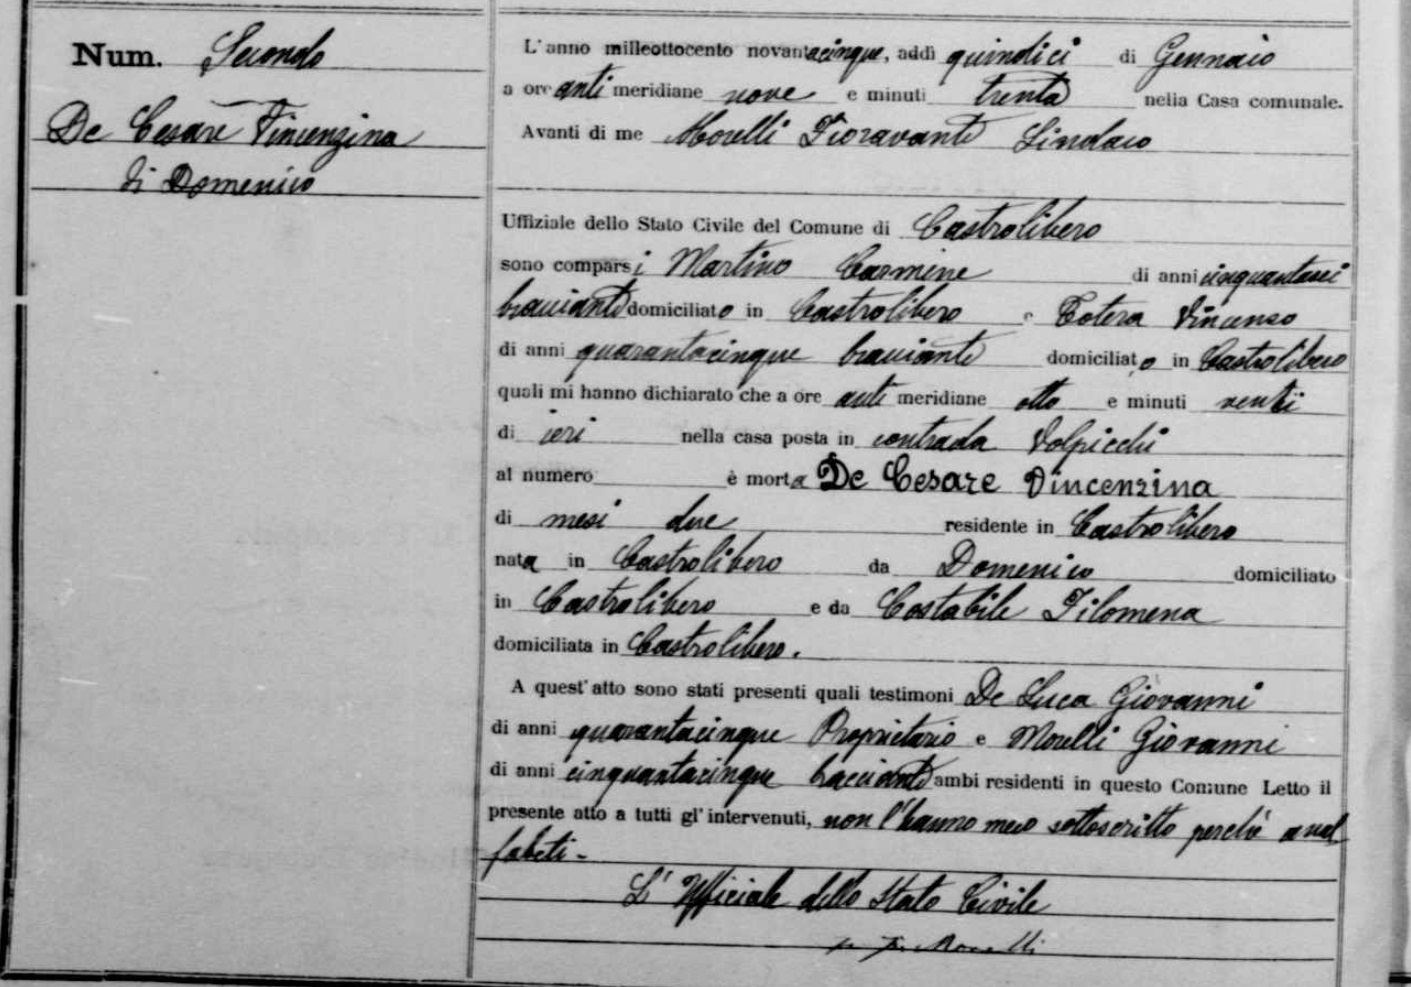 Num. Secondo
De Cesare Vincenzina
di Domenico
L'anno milleottocento novantacinque, addì quindici di Gennaio
a ore anti meridiane nove e minuti trenta nella Casa comunale.
Avanti di me Morelli Fioravante Sindaco
Uffiziale dello Stato Civile del Comune di Castrolibero
sono comparsi Martino Carmine di anni cinquantasei
bracciante domiciliato in Castrolibero e Totera Vincenso
di anni quarantacinque bracciante domiciliato in Castrolibero
quali mi hanno dichiarato che a ore anti meridiane otto e minuti venti
di ieri nella casa posta in contrada Volpicchi
al numero è morta De Cesare Vincenzina
di mesi due residente in Castrolibero
nata in Castrolibero da Domenico domiciliato
in Castrolibero e da Costabile Filomena
domiciliata in Castrolibero.
A quest'atto sono stati presenti quali testimoni De Luca Giovanni
di anni quarantacinque Proprietario e Morelli Giovanni
di anni cinquantacinque bracciante ambi residenti in questo Comune Letto il
presente atto a tutti gl'intervenuti, non l'hanno meco sottoscritto perchè anal
fabeti -
L'Ufficiale dello Stato Civile
F. Morelli